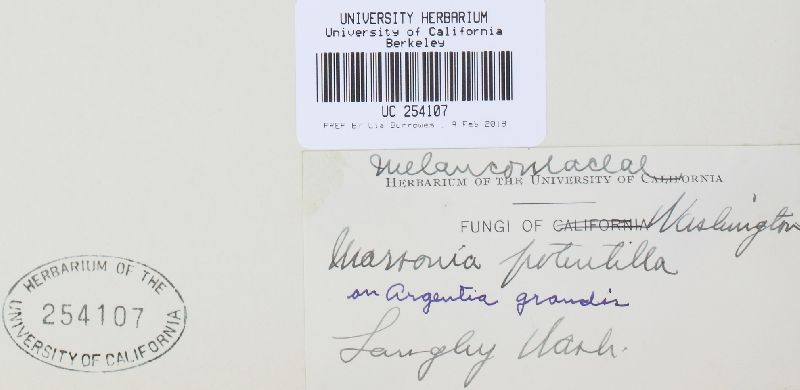 UNIVERSITY HERBARIUM
University of California
Berkeley
UC 254107
PREP BY Lia Burrowes , 9 Feb 2018
Melanconiaceae
HERBARIUM OF THE UNIVERSITY OF CALIFORNIA
FUNGI OF CALIFORNIA Washington
Marsonia potentilla
on Argentia grandis
Langley Wash.
HERBARIUM OF THE
254107
UNIVERSITY OF CALIFORNIA